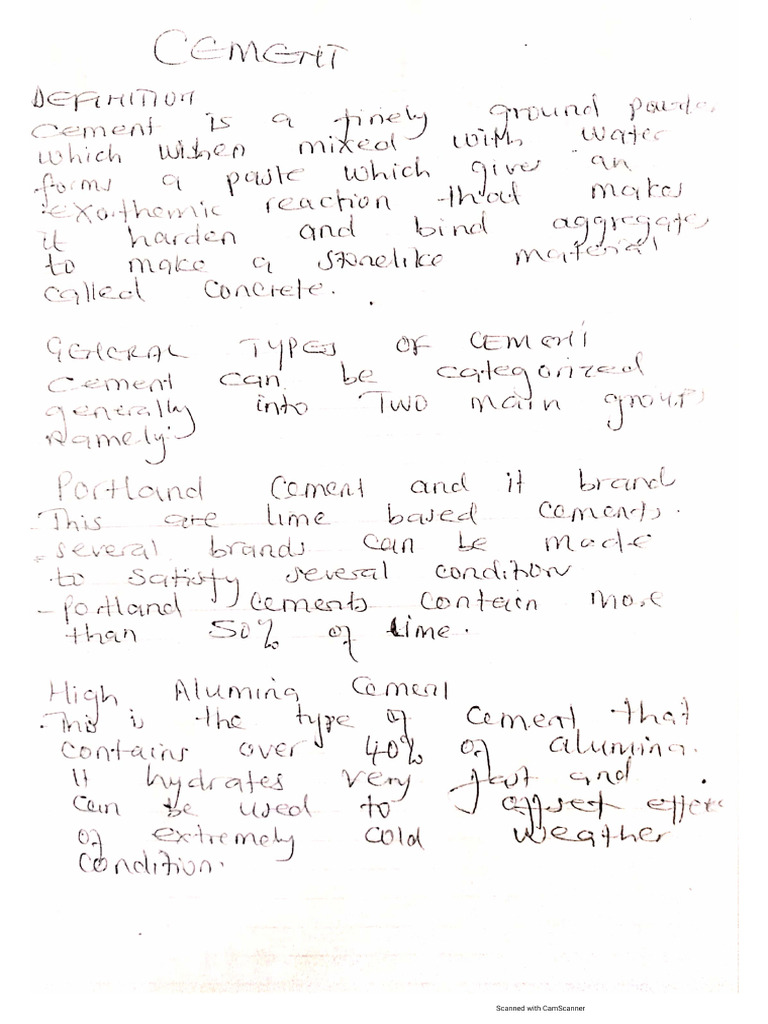 CEMENT
DEFINITION
Cement is a finely ground powder
which when mixed with water
forms a paste which give an
exothemic reaction that makes
it harden and bind aggregates
to make a stonelike material
called concrete.
GENERAL TYPES OF CEMENT
Cement can be categorized
generally into TWO main groups
Namely:
Portland Cement and it brand
- This are lime based cements.
- several brands can be made
to satisfy several condition
- portland cements contain more
than 50% of lime.
High Alumina Cement
- This is the type of cement that
contains over 40% of alumina.
It hydrates very fast and
can be used to offset effects
of extremely cold weather
condition.
Scanned with CamScanner